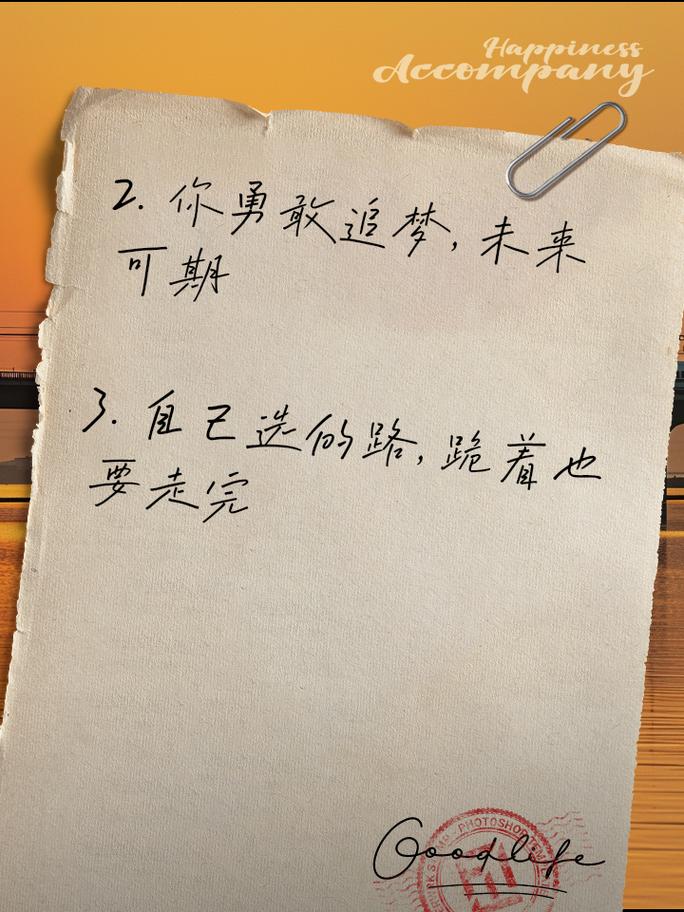 Happiness
Accompany
2. 你勇敢追梦, 未来
可期
3. 自己选的路, 跪着也
要走完
PHOTOSHOP
Goodlife